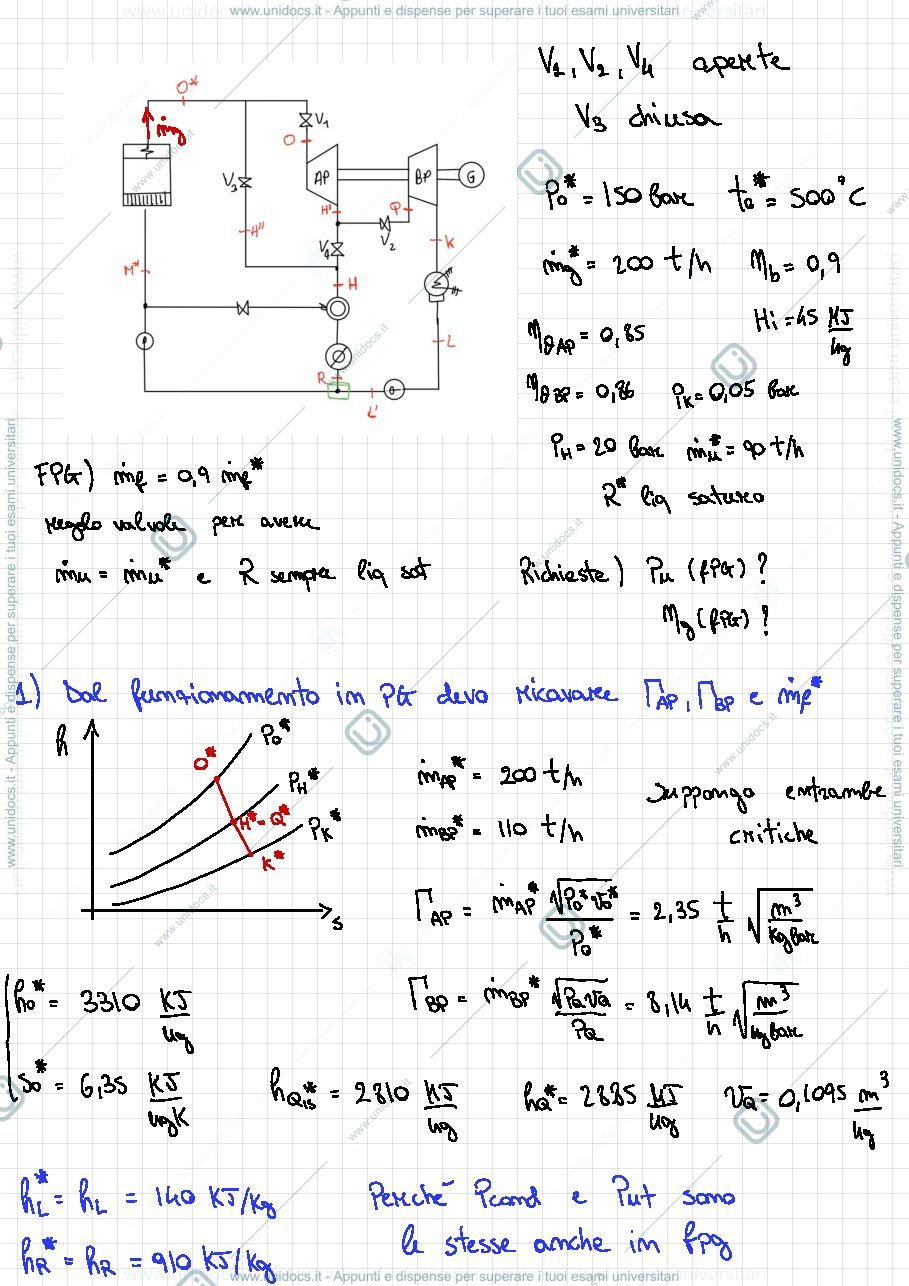 www.unidocs.it - Appunti e dispense per superare i tuoi esami universitari
V1, V2, V4 aperte
V3 chiusa
O*
ṁg
V1
O
AP
BP
G
V3
H'
Q
V2
V4
H''
K
M*
H
L
R
L'
P0* = 150 bar t0* = 500°C
ṁg* = 200 t/h ηb = 0,9
ηθAP = 0,85 Hi = 45 MJ/kg
ηθBP = 0,86 PK = 0,05 bar
PH = 20 bar ṁu* = 90 t/h
R* liq saturo
FPG) ṁf = 0,9 ṁf*
regolo valvole per avere
ṁu = ṁu* e R sempre liq sat
Richieste) Pu (fPG)?
ηg (fPG)?
1) Dal funzionamento in PG devo ricavare ΓAP, ΓBP e ṁf*
h
P0*
O*
PH*
H* = Q*
PK*
K*
s
ṁAP* = 200 t/h
ṁBP* = 110 t/h
Suppongo entrambe
critiche
ΓAP = ṁAP* √(P0* v0*) / P0* = 2,35 t/h √(m³/(kg bar))
ΓBP = ṁBP* √(PQ vQ) / PQ = 8,14 t/h √(m³/(kg bar))
h0* = 3310 KJ/kg
s0* = 6,35 KJ/kgK hQis* = 2810 KJ/kg hQ* = 2885 KJ/kg vQ = 0,1095 m³/kg
hL* = hL = 140 KJ/kg
Perché Pcond e Put sono
hR* = hR = 910 KJ/kg
le stesse anche in fpg
www.unidocs.it - Appunti e dispense per superare i tuoi esami universitari